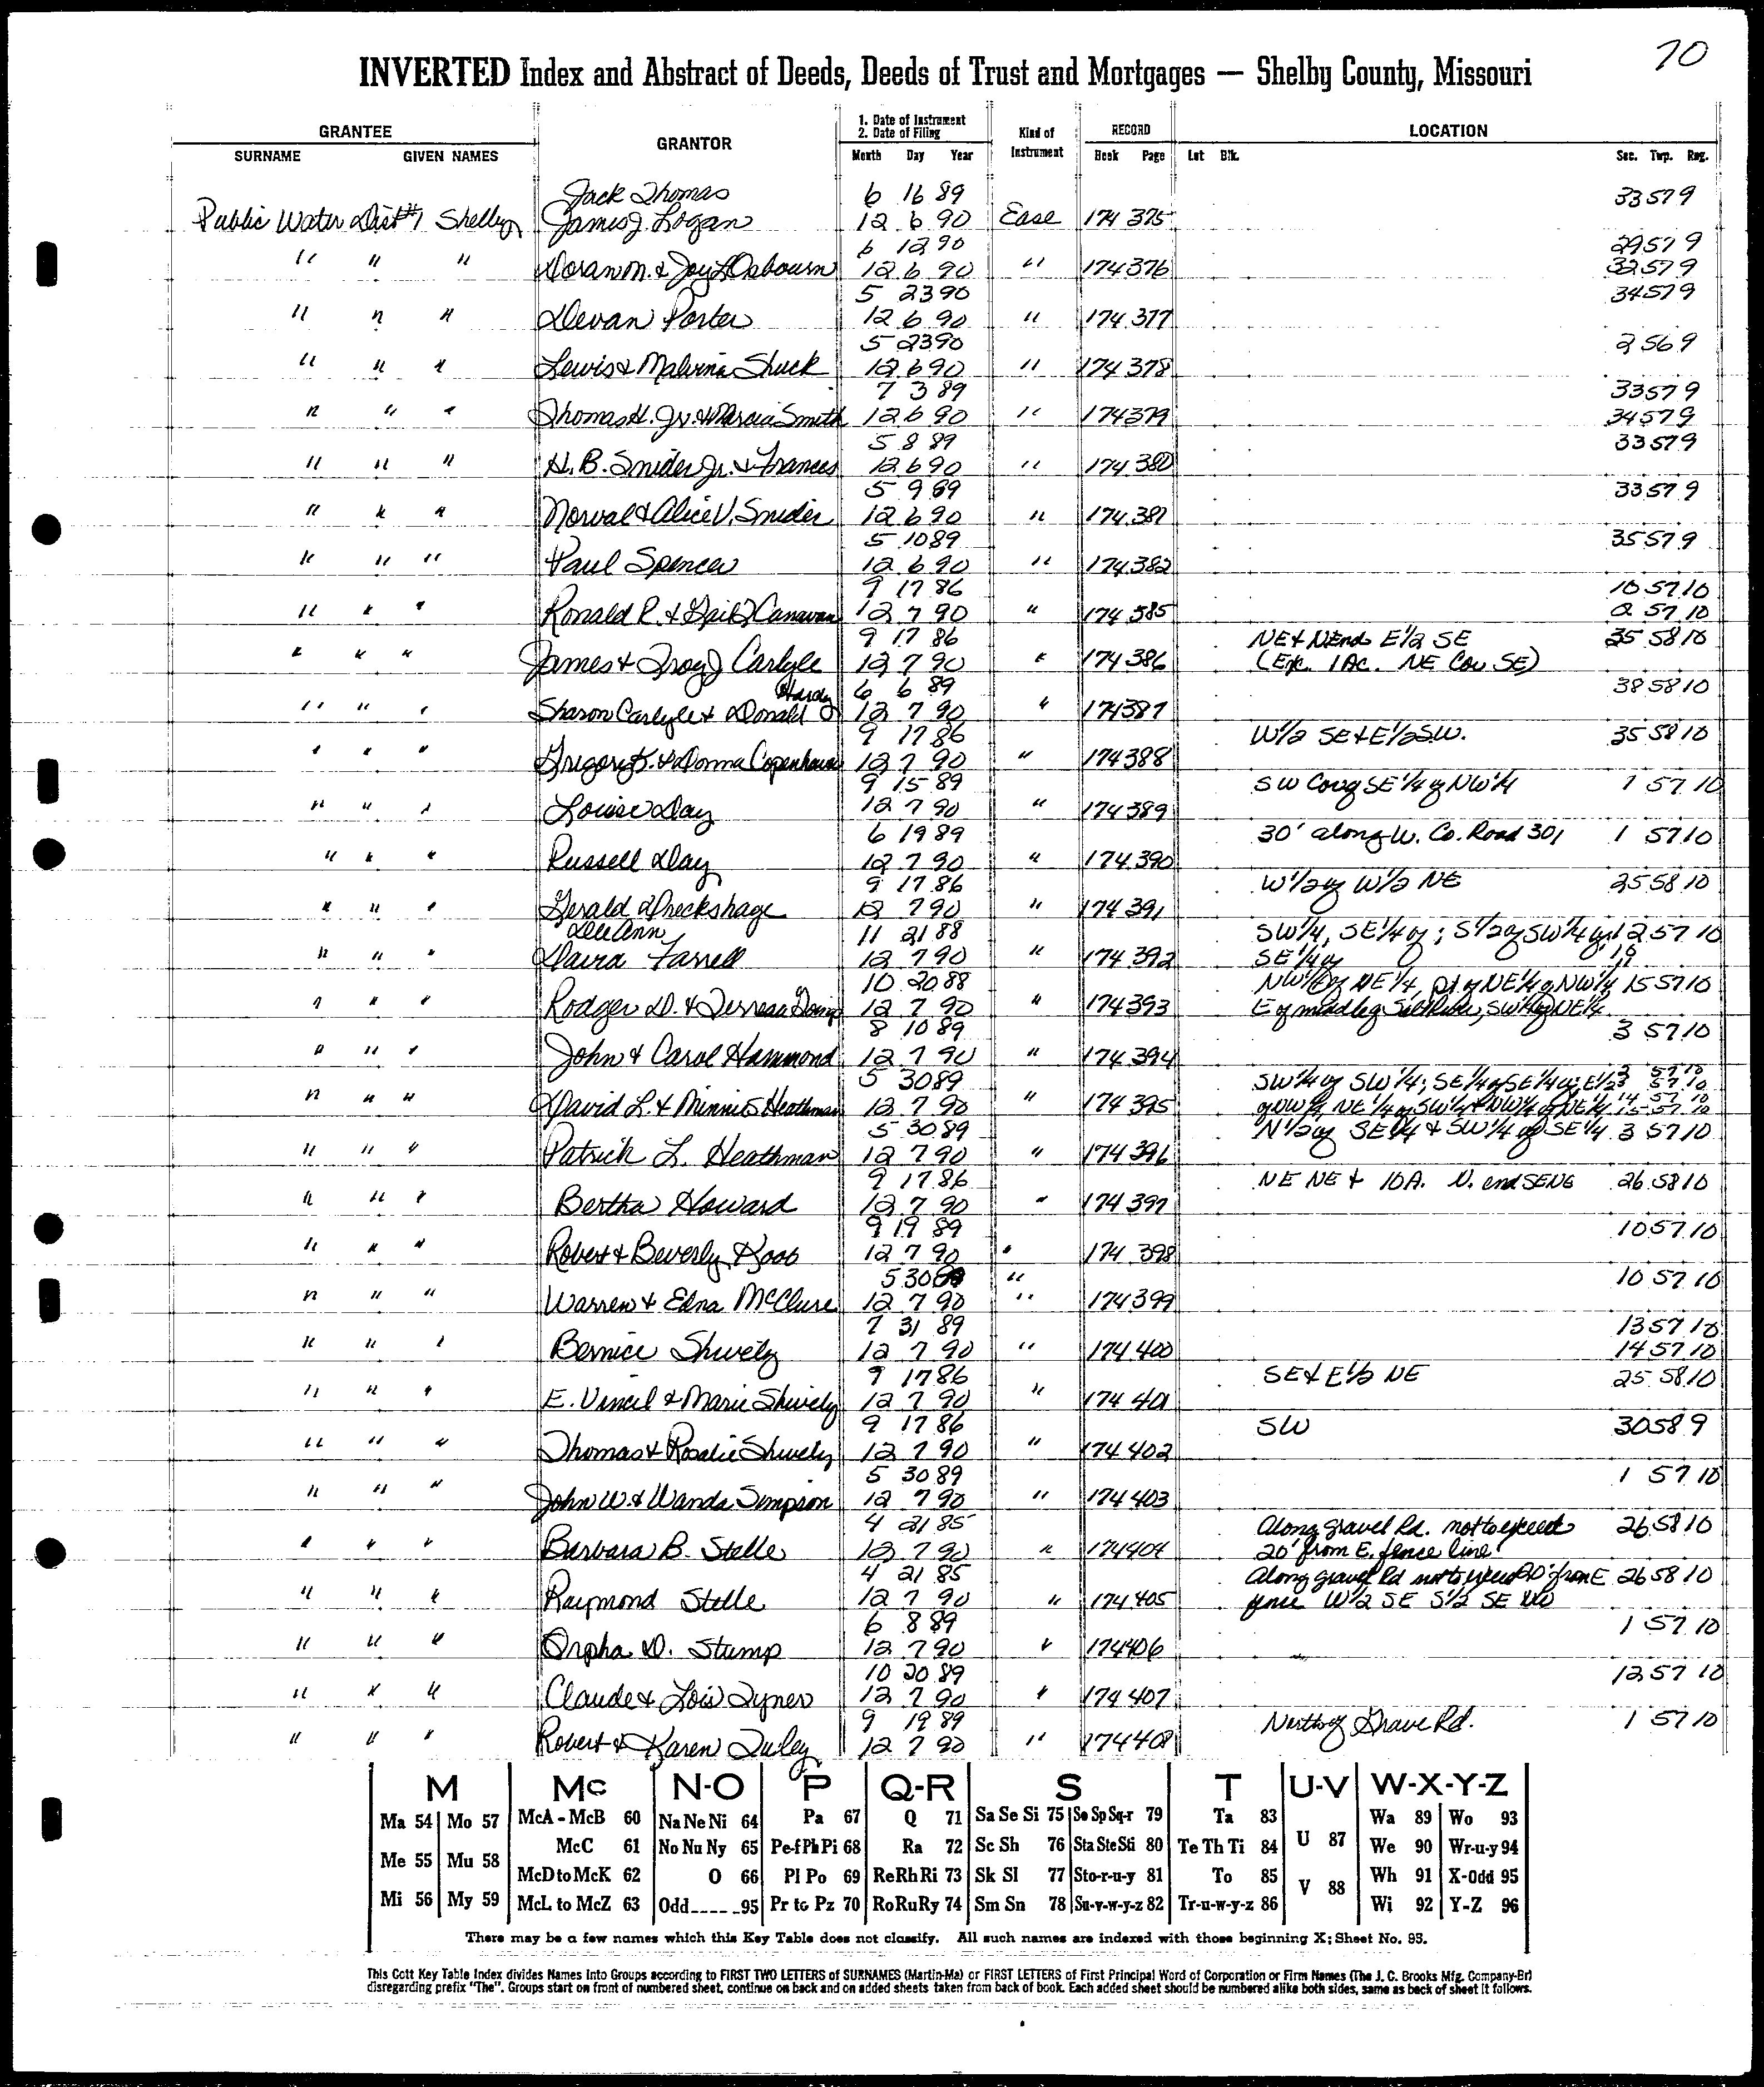 70
INVERTED Index and Abstract of Deeds, Deeds of Trust and Mortgages — Shelby County, Missouri
GRANTEE GRANTOR 1. Date of Instrument 2. Date of Filing Kind of Instrument RECORD LOCATION
SURNAME GIVEN NAMES Month Day Year Book Page Lot Blk. Sec. Twp. Rng.
Jack Thomas 6 16 89 33 57 9
Public Water Dist #1 Shelby James J. Logan 12 6 90 Ease 174 375
6 12 90 29 57 9
" " " Doran M. & Joy L Osbourn 12 6 90 " 174 376 32 57 9
5 23 90 34 57 9
" " " Devan Porter 12 6 90 " 174 377
5 23 90 2 56 9
" " " Lewis & Malvina Shuck 12 6 90 " 174 378
7 3 89 33 57 9
" " " Thomas H. Jr. & Marcia Smith 12 6 90 " 174 379 34 57 9
5 8 89 33 57 9
" " " H. B. Snider Jr. & Frances 12 6 90 " 174 380
5 9 89 33 57 9
" " " Norval & Alice V. Snider 12 6 90 " 174 381
5 10 89 35 57 9
" " " Paul Spencer 12 6 90 " 174 382
9 17 86 10 57 10
" " " Ronald R. & Gail Canavan 12 7 90 " 174 385 2 57 10
9 17 86 NE & N End E 1/2 SE 35 58 10
" " " James & Troy J Carlyle 12 7 90 " 174 386 (Exc. 1 Ac. NE Cor SE)
Hardy 6 6 89 38 58 10
" " " Sharon Carlyle & Donald 12 7 90 " 174 387
9 17 86 W 1/2 SE & E 1/2 S.W. 35 58 10
" " " Gregory K. & Donna Copenhaver 12 7 90 " 174 388
9 15 89 SW Cor of SE 1/4 of NW 1/4 1 57 10
" " " Louise Day 12 7 90 " 174 389
6 19 89 30' along W. Co. Road 301 1 57 10
" " " Russell Day 12 7 90 " 174 390
9 17 86 W 1/2 of W 1/2 NE 25 58 10
" " " Gerald Dreckshage 12 7 90 " 174 391
DeeAnn 11 21 88 SW 1/4, SE 1/4 of ; S 1/2 of SW 1/4 12 57 10
" " " Farrell 12 7 90 " 174 392 SE 1/4 of
10 20 88 NW 1/4 of NE 1/4, pt of NE 1/4 of NW 1/4 15 57 10
" " " Rodger D. & 12 7 90 " 174 393 E of SW 1/4 of NE 1/4
8 10 89 3 57 10
" " " John & Carol Hammond 12 7 90 " 174 394
5 30 89 SW 1/4 of SW 1/4; SE 1/4 of SE 1/4 E 1/2 57 10
" " " David L. & Minnie Heathman 12 7 90 " 174 395 of NW 1/4 NE 1/4 of SW 1/4 & NW 1/4 of NE 1/4 14 57 10 15 57 10
5 30 89 N 1/2 of SE 1/4 & SW 1/4 of SE 1/4 3 57 10
" " " Patrick L. Heathman 12 7 90 " 174 396
9 17 86 NE NE & 10 A. N. end SE NE 26 58 10
" " " Bertha Howard 12 7 90 " 174 397
9 19 89 10 57 10
" " " Robert & Beverly Koob 12 7 90 " 174 398
5 30 " 10 57 10
" " " Warren & Edna McClure 12 7 90 " 174 399
7 31 89 13 57 10
" " " Bernice Shively 12 7 90 " 174 400 14 57 10
9 17 86 SE & E 1/2 NE 25 58 10
" " " E. Vincil & Marie Shively 12 7 90 " 174 401
9 17 86 SW 30 58 9
" " " Thomas & Rosalie Shively 12 7 90 " 174 402
5 30 89 1 57 10
" " " John W. & Wanda Simpson 12 7 90 " 174 403
4 21 85 Along gravel Rd. not to exceed 26 58 10
" " " Barbara B. Stelle 12 7 90 " 174 404 20' from E. fence line
4 21 85 Along gravel Rd not to exceed 20' from E 26 58 10
" " " Raymond Stelle 12 7 90 " 174 405 fence W 1/2 SE S 1/2 SE
6 8 89 1 57 10
" " " Orpha D. Stump 12 7 90 " 174 406
10 20 89 12 57 10
" " " Claude & Lois Tyner 12 7 90 " 174 407
9 19 89 North of Grave Rd. 1 57 10
" " " Robert & Karen Tuley 12 7 90 " 174 408
M Mc N-O P Q-R S T U-V W-X-Y-Z
Ma 54 Mo 57 McA - McB 60 Na Ne Ni 64 Pa 67 Q 71 Sa Se Si 75 So Sp Sq-r 79 Ta 83 U 87 Wa 89 Wo 93
Me 55 Mu 58 McC 61 No Nu Ny 65 Pe-f Ph Pi 68 Ra 72 Sc Sh 76 Sta Ste Sti 80 Te Th Ti 84 We 90 Wr-u-y 94
McD to McK 62 O 66 Pl Po 69 Re Rh Ri 73 Sk Sl 77 Sto-r-u-y 81 To 85 V 88 Wh 91 X-Odd 95
Mi 56 My 59 McL to McZ 63 Odd 95 Pr to Pz 70 Ro Ru Ry 74 Sm Sn 78 Su-v-w-y-z 82 Tr-u-w-y-z 86 Wi 92 Y-Z 96
There may be a few names which this Key Table does not classify. All such names are indexed with those beginning X; Sheet No. 95.
This Cott Key Table Index divides Names Into Groups according to FIRST TWO LETTERS of SURNAMES (Martin-Ma) or FIRST LETTERS of First Principal Word of Corporation or Firm Names (The J. C. Brooks Mfg. Company-Br)
disregarding prefix "The". Groups start on front of numbered sheet, continue on back and on added sheets taken from back of book. Each added sheet should be numbered alike both sides, same as back of sheet it follows.